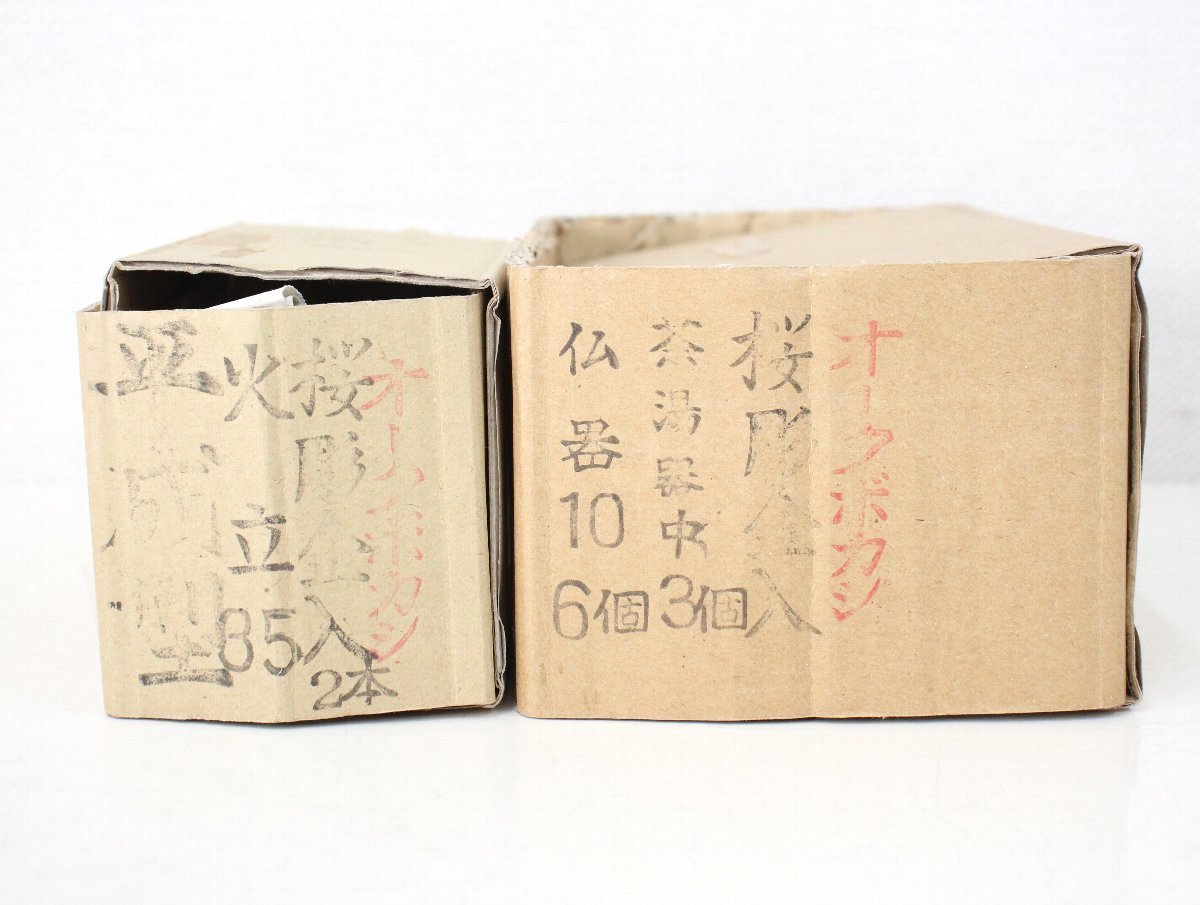 オークボカシ
桜彫金入
2本
火立85
オークボカシ
桜彫金入
茶湯器中
3個
仏器10
6個